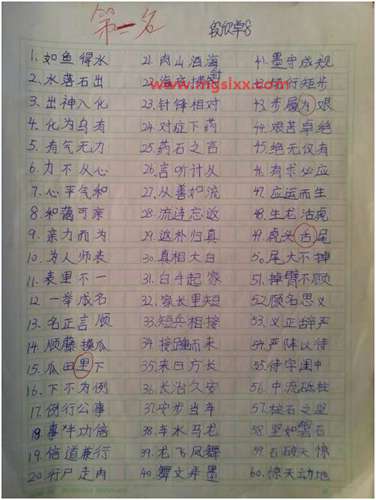 第一名
段欣雪
www.mgsixx.com
1. 如鱼得水
2. 水落石出
3. 出神入化
4. 化为乌有
5. 有气无力
6. 力不从心
7. 心平气和
8. 和蔼可亲
9. 亲力而为
10. 为人师表
11. 表里不一
12. 一举成名
13. 名正言顺
14. 顺藤摸瓜
15. 瓜田里下
16. 下不为例
17. 例行公事
18. 事半功倍
19. 倍道兼行
20. 行尸走肉
21. 肉山酒海
22. 海底捞针
23. 针锋相对
24. 对症下药
25. 药石之言
26. 言听计从
27. 从善如流
28. 流连忘返
29. 返朴归真
30. 真相大白
31. 白手起家
32. 家长里短
33. 短兵相接
34. 接踵而来
35. 来日方长
36. 长治久安
37. 安步当车
38. 车水马龙
39. 龙飞凤舞
40. 舞文弄墨
41. 墨守成规
42. 规行矩步
43. 步履为艰
44. 艰苦卓绝
45. 绝无仅有
46. 有求必应
47. 应运而生
48. 生龙活虎
49. 虎头舌尾
50. 尾大不掉
51. 掉臂不顾
52. 顾名思义
53. 义正辞严
54. 严阵以待
55. 待字闺中
56. 中流砥柱
57. 柱石之坚
58. 坚如磐石
59. 石破天惊
60. 惊天动地